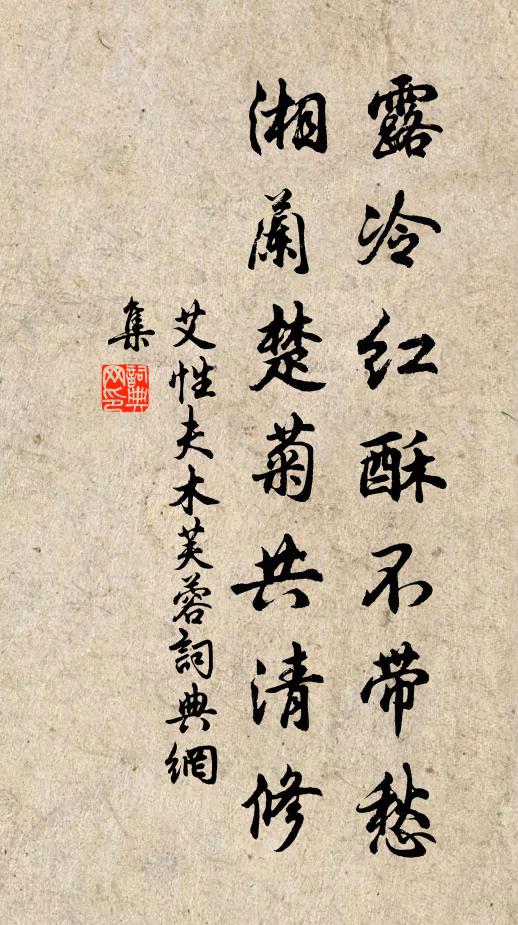 露冷红酥不带愁
湘蘭楚菊共清修
艾性夫木芙蓉詞典網
集
詞典
网印